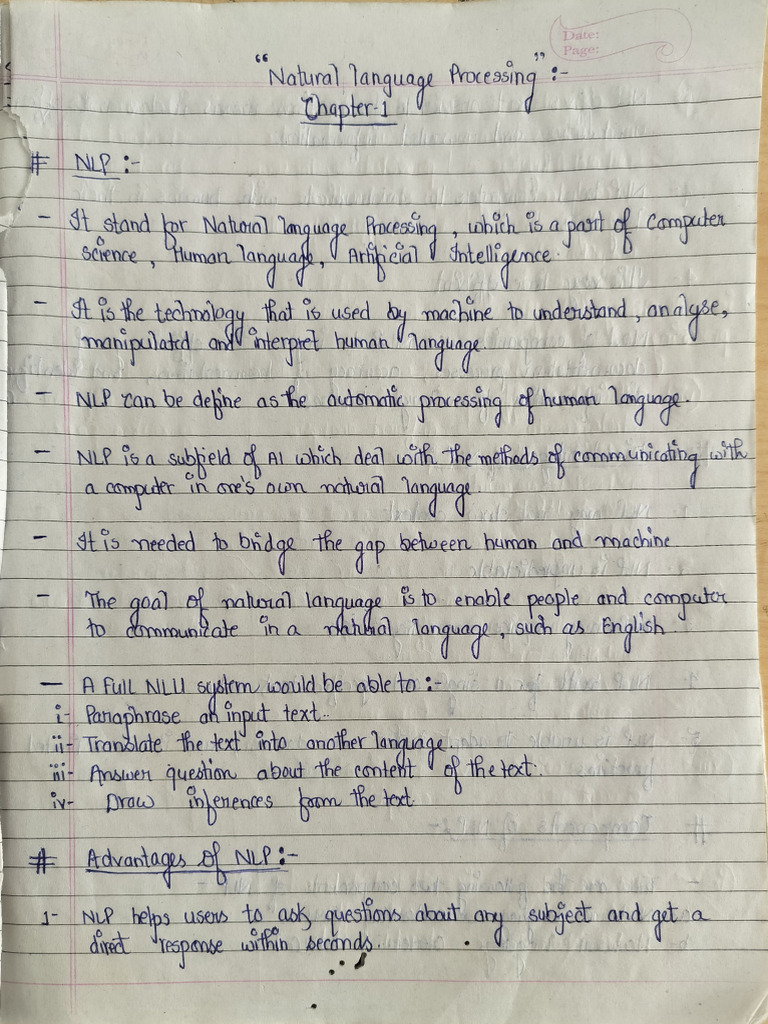 Date:
Page:
"Natural language Processing" :-
Chapter-1
# NLP :-
- It stand for Natural language Processing, which is a part of Computer
science, Human language, Artificial Intelligence.
- It is the technology that is used by machine to understand, analyse,
manipulated and interpret human language.
- NLP can be define as the automatic processing of human language.
- NLP is a subfield of AI which deal with the methods of communicating with
a computer in one's own natural language.
- It is needed to bridge the gap between human and machine.
- The goal of natural language is to enable people and computer
to communicate in a natural language, such as English.
- A full NLU system would be able to :-
i- Paraphrase an input text.
ii- Translate the text into another language.
iii- Answer question about the content of the text.
iv- Draw inferences from the text.
# Advantages of NLP :-
1- NLP helps users to ask questions about any subject and get a
direct response within seconds.